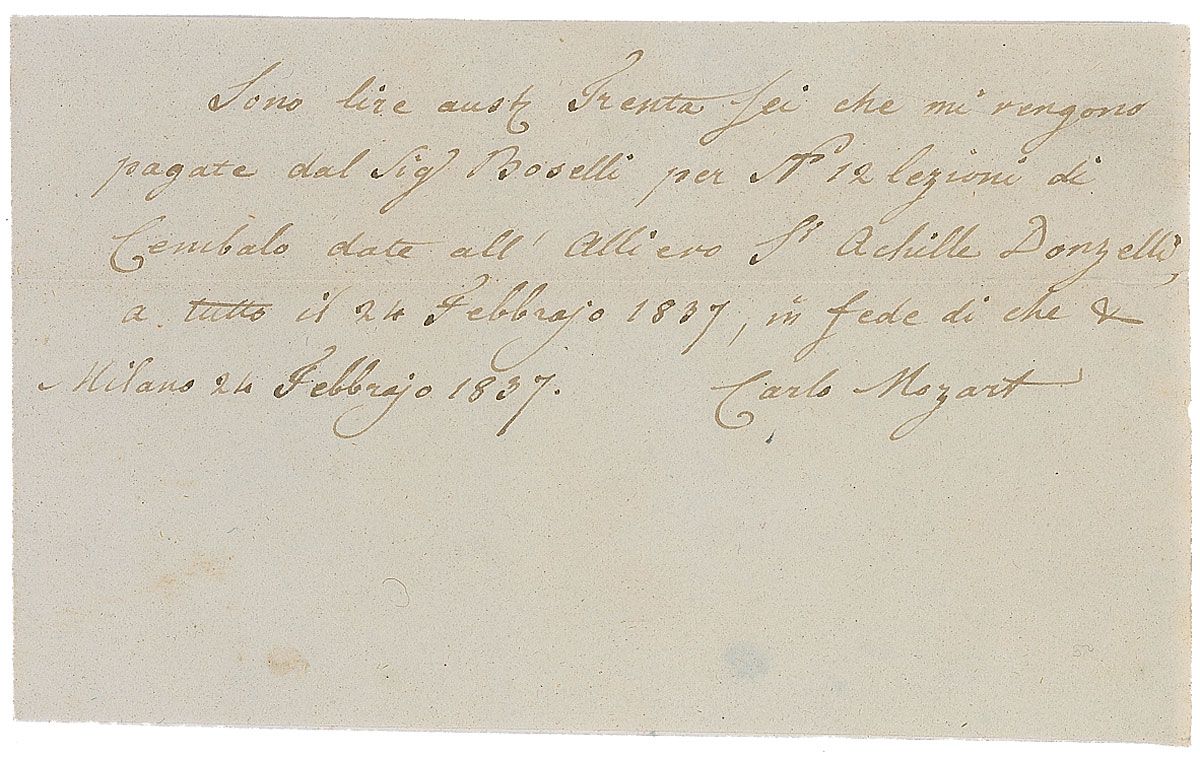 Sono lire austr Trenta sei che mi vengono
pagate dal Sigr Boselli per No 12 lezioni di
Cembalo date all' Allievo Sr Achille Donzelli,
a tutto il 24 Febbrajo 1837, in fede di che &
Milano 24 Febbrajo 1837. Carlo Mozart